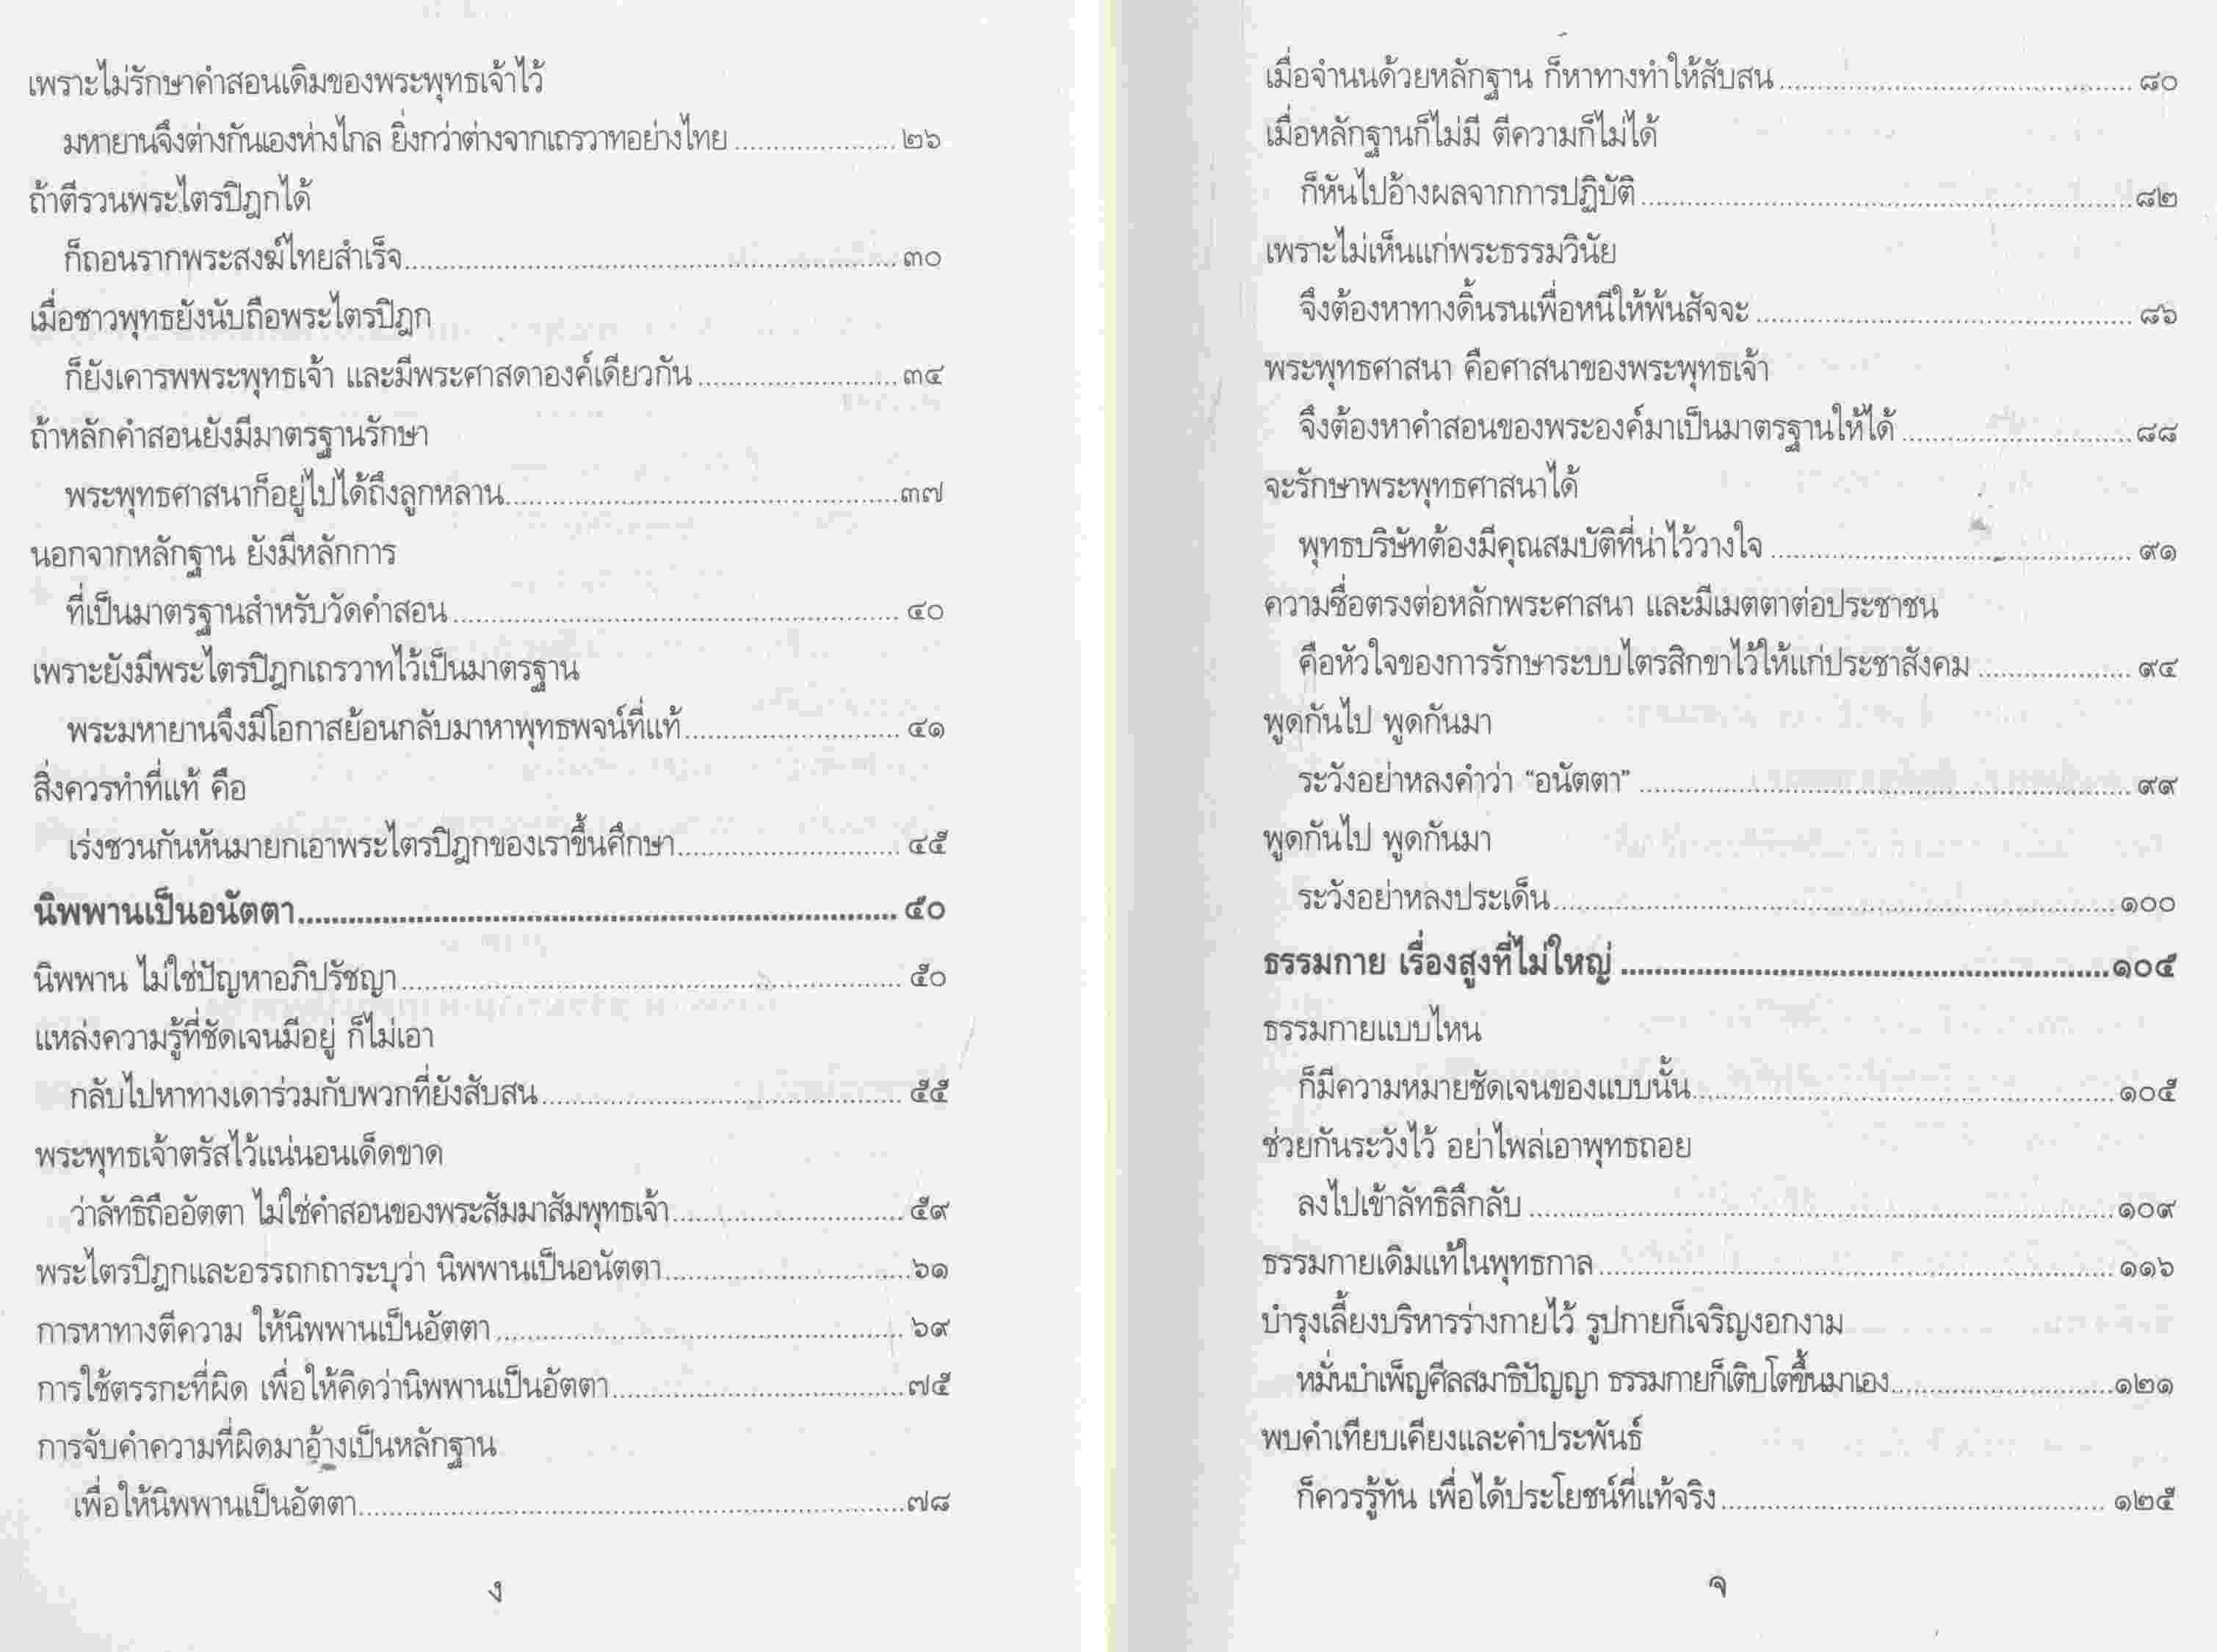 เพราะไม่รักษาคำสอนเดิมของพระพุทธเจ้าไว้
มหายานจึงต่างกันเองห่างไกล ยิ่งกว่าต่างจากเถรวาทอย่างไทย ..................... ๒๖
ถ้าตีรวนพระไตรปิฎกได้
ก็ถอนรากพระสงฆ์ไทยสำเร็จ................................................................ ๓๐
เมื่อชาวพุทธยังนับถือพระไตรปิฎก
ก็ยังเคารพพระพุทธเจ้า และมีพระศาสดาองค์เดียวกัน .......................... ๓๔
ถ้าหลักคำสอนยังมีมาตรฐานรักษา
พระพุทธศาสนาก็อยู่ไปได้ถึงลูกหลาน...................................................๓๗
นอกจากหลักฐาน ยังมีหลักการ
ที่เป็นมาตรฐานสำหรับวัดคำสอน .......................................................... ๔๐
เพราะยังมีพระไตรปิฎกเถรวาทไว้เป็นมาตรฐาน
พระมหายานจึงมีโอกาสย้อนกลับมาหาพุทธพจน์ที่แท้............................ ๔๑
สิ่งควรทำที่แท้ คือ
เร่งชวนกันหันมายกเอาพระไตรปิฎกของเราขึ้นศึกษา............................. ๔๕
นิพพานเป็นอนัตตา....................................................................... ๕๐
นิพพาน ไม่ใช่ปัญหาอภิปรัชญา................................................................. ๕๐
แหล่งความรู้ที่ชัดเจนมีอยู่ ก็ไม่เอา
กลับไปหาทางเดาร่วมกับพวกที่ยังสับสน............................................... ๕๕
พระพุทธเจ้าตรัสไว้แน่นอนเด็ดขาด
ว่าลัทธิถืออัตตา ไม่ใช่คำสอนของพระสัมมาสัมพุทธเจ้า.............................. ๕๙
พระไตรปิฎกและอรรถกถาระบุว่า นิพพานเป็นอนัตตา................................๖๑
การหาทางตีความ ให้นิพพานเป็นอัตตา ..................................................... ๖๙
การใช้ตรรกะที่ผิด เพื่อให้คิดว่านิพพานเป็นอัตตา......................................๗๕
การจับคำความที่ผิดมาอ้างเป็นหลักฐาน
เพื่อให้นิพพานเป็นอัตตา.......................................................................๗๘
ง
เมื่อจำนนด้วยหลักฐาน ก็หาทางทำให้สับสน .............................................. ๘๐
เมื่อหลักฐานก็ไม่มี ตีความก็ไม่ได้
ก็หันไปอ้างผลจากการปฏิบัติ ................................................................๘๒
เพราะไม่เห็นแก่พระธรรมวินัย
จึงต้องหาทางดิ้นรนเพื่อหนีให้พ้นสัจจะ ................................................. ๘๖
พระพุทธศาสนา คือศาสนาของพระพุทธเจ้า
จึงต้องหาคำสอนของพระองค์มาเป็นมาตรฐานให้ได้ .............................. ๘๘
จะรักษาพระพุทธศาสนาได้
พุทธบริษัทต้องมีคุณสมบัติที่น่าไว้วางใจ ............................................... ๙๑
ความซื่อตรงต่อหลักพระศาสนา และมีเมตตาต่อประชาชน
คือหัวใจของการรักษาระบบไตรสิกขาไว้ให้แก่ประชาสังคม .................... ๙๔
พูดกันไป พูดกันมา
ระวังอย่าหลงคำว่า “อนัตตา” ................................................................ ๙๙
พูดกันไป พูดกันมา
ระวังอย่าหลงประเด็น......................................................................... ๑๐๐
ธรรมกาย เรื่องสูงที่ไม่ใหญ่ ..........................................................๑๐๕
ธรรมกายแบบไหน
ก็มีความหมายชัดเจนของแบบนั้น....................................................... ๑๐๕
ช่วยกันระวังไว้ อย่าไพล่เอาพุทธถอย
ลงไปเข้าลัทธิลึกลับ ............................................................................ ๑๐๙
ธรรมกายเดิมแท้ในพุทธกาล ................................................................... ๑๑๖
บำรุงเลี้ยงบริหารร่างกายไว้ รูปกายก็เจริญงอกงาม
หมั่นบำเพ็ญศีลสมาธิปัญญา ธรรมกายก็เติบโตขึ้นมาเอง.............................๑๒๑
พบคำเทียบเคียงและคำประพันธ์
ก็ควรรู้ทัน เพื่อได้ประโยชน์ที่แท้จริง .................................................. ๑๒๕
จ